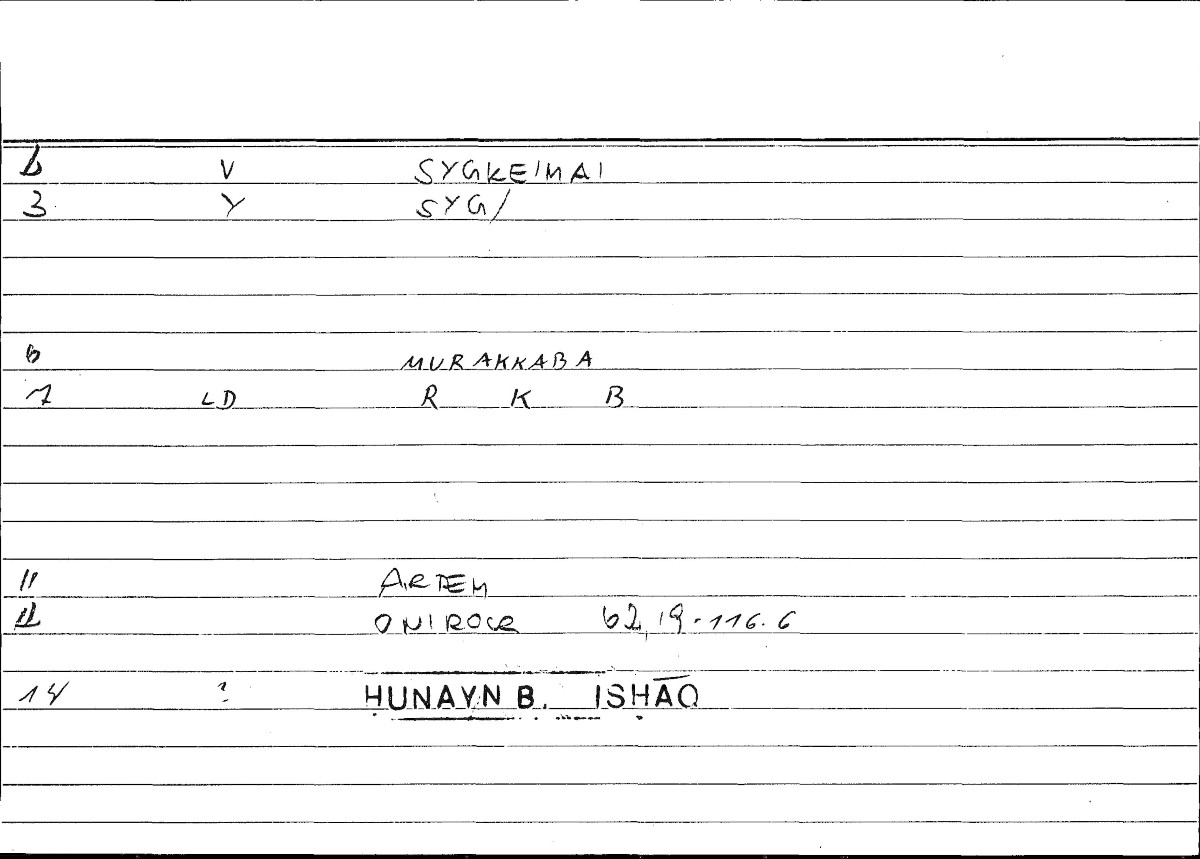 2 V SYGKEIMAI
3 Y SYG/
6 MURAKKABA
7 LD R K B
11 ARTEM
12 ONIROCR 62,19-116.6
14 ? ḤUNAYN B. ISḤĀQ